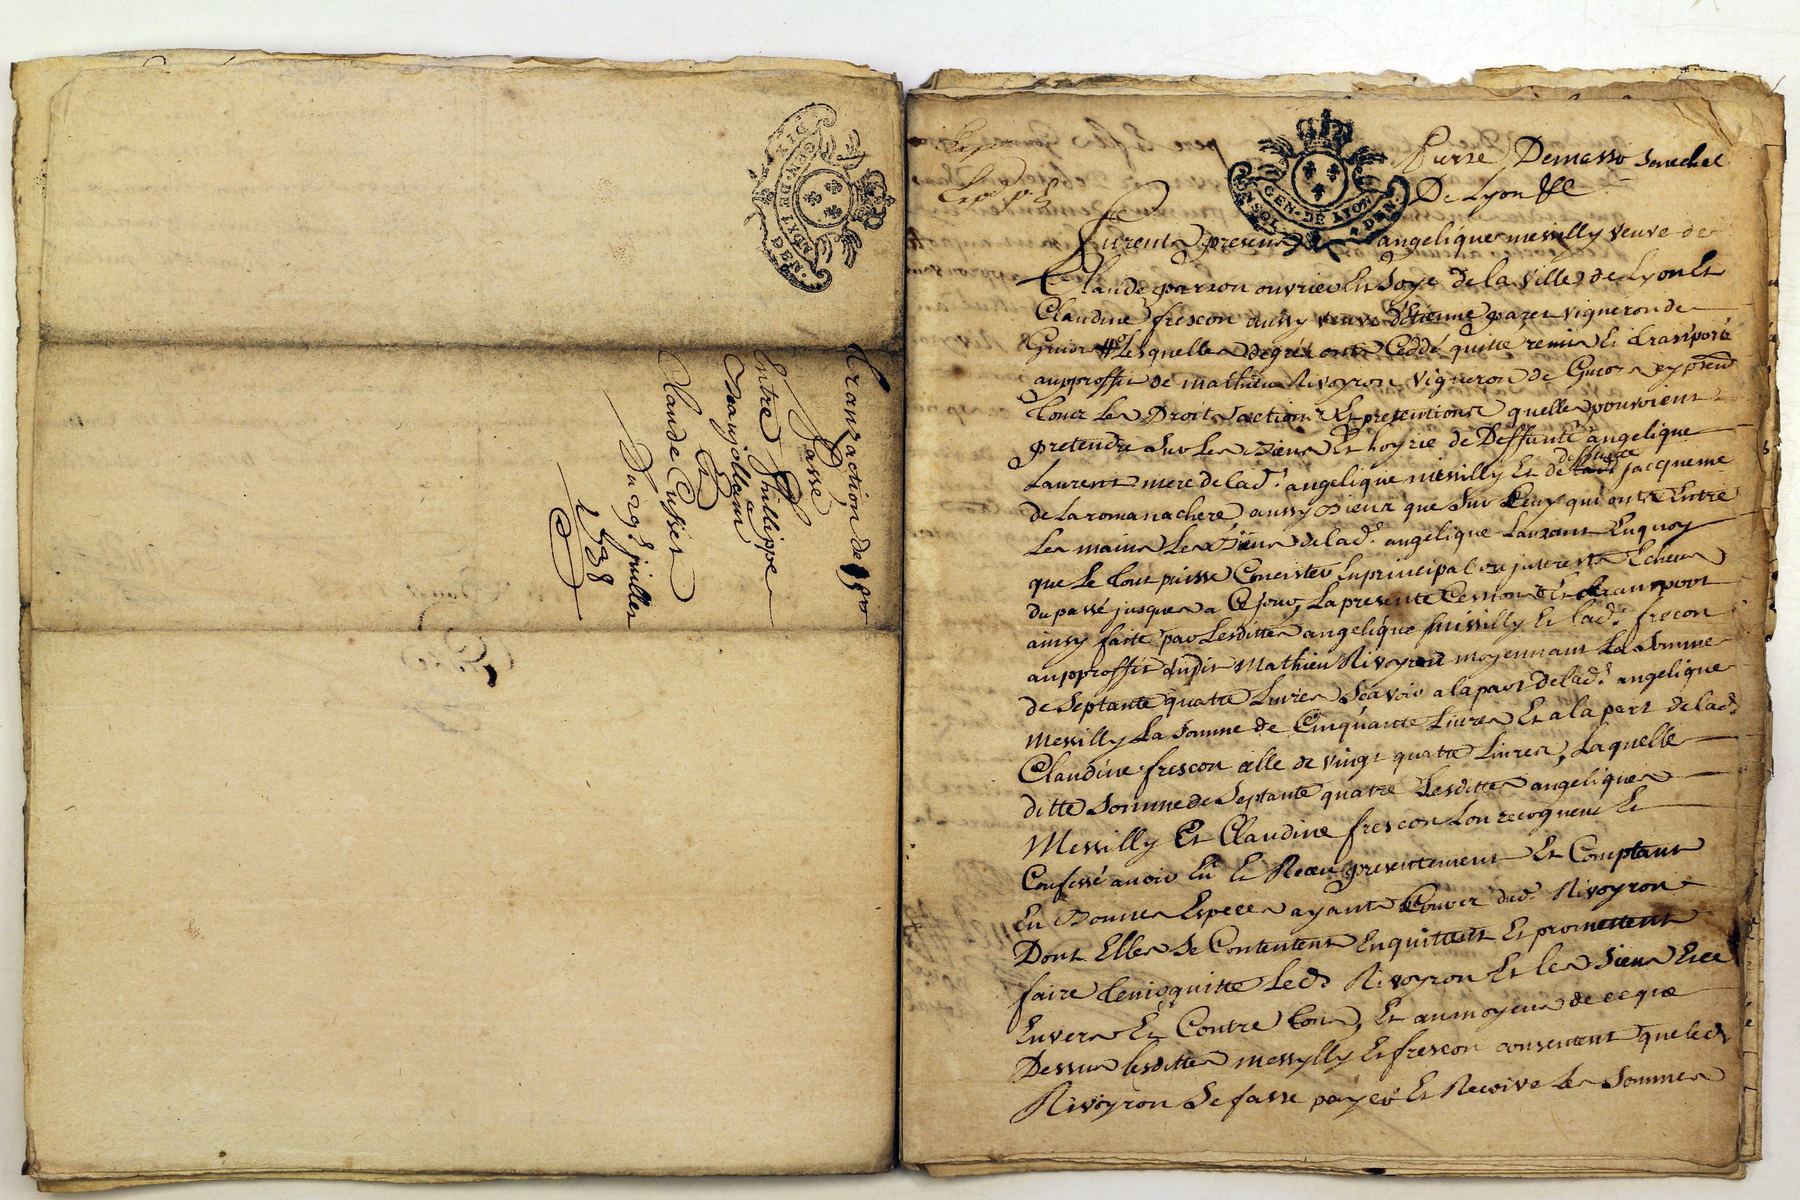 Transaction de
Passé
Entre Phillippe
Beaujollain
Et
Claude Cusset
Du 29e juillet
1738
GEN·DE LYON
DEN·
GEN·DE LYON
DEN·
Pierre Demesso senechal
De Lyon &c
furent presens angelique messilly veuve de
Claude parron ouvrier En Soye de la Ville de Lyon Et
Claudine frescon aussy veuve d'Etienne paret vigneron de
lesquelles degré ont Ceddé quitte remis Et transporté
aupproffit de mathieu Rivoyron vigneron de
tous les Droits actions Et pretentions quelles pouvoient
pretendre sur les biens Et hoyrie de Deffunte angelique
Laurent mere de lad.e angelique messilly Et de deffunte jacqueme
de la romanachere, aussy bien que sur Ceux qui ont Entre
les mains les biens de lad.e angelique Laurent Enquoy
que le tout puisse Concister En principal ou interests Echeus
du passé jusques a Ce jour, La presente Cession Et transport
ainsy faite par lesdittes angelique messilly Et lad.e frescon
aupproffit dudit Mathieu Rivoyron moyennant La somme
de septante quatre Livres Scavoir a la part de lad.e angelique
Messilly La somme de Cinquante Livres Et a la part de lad.e
Claudine frescon celle de vingt quatre Livres, Laquelle
ditte somme de septante quatre lesdittes angelique
Messilly Et Claudine frescon ont recogneu Et
Confessé avoir Eü Et Receu presentement Et Comptant
En Bonnes Especes ayant Cours dud. Rivoyron
Dont Elles se Contentent Enquittent Et promettent
faire tenir quitte led. Rivoyron Et les siens
Envers Et Contre tous, Et au moyen de ce que
Dessus lesdittes messylly Et frescon consentent que led.
Rivoyron se fasse payer Et Recoive les sommes